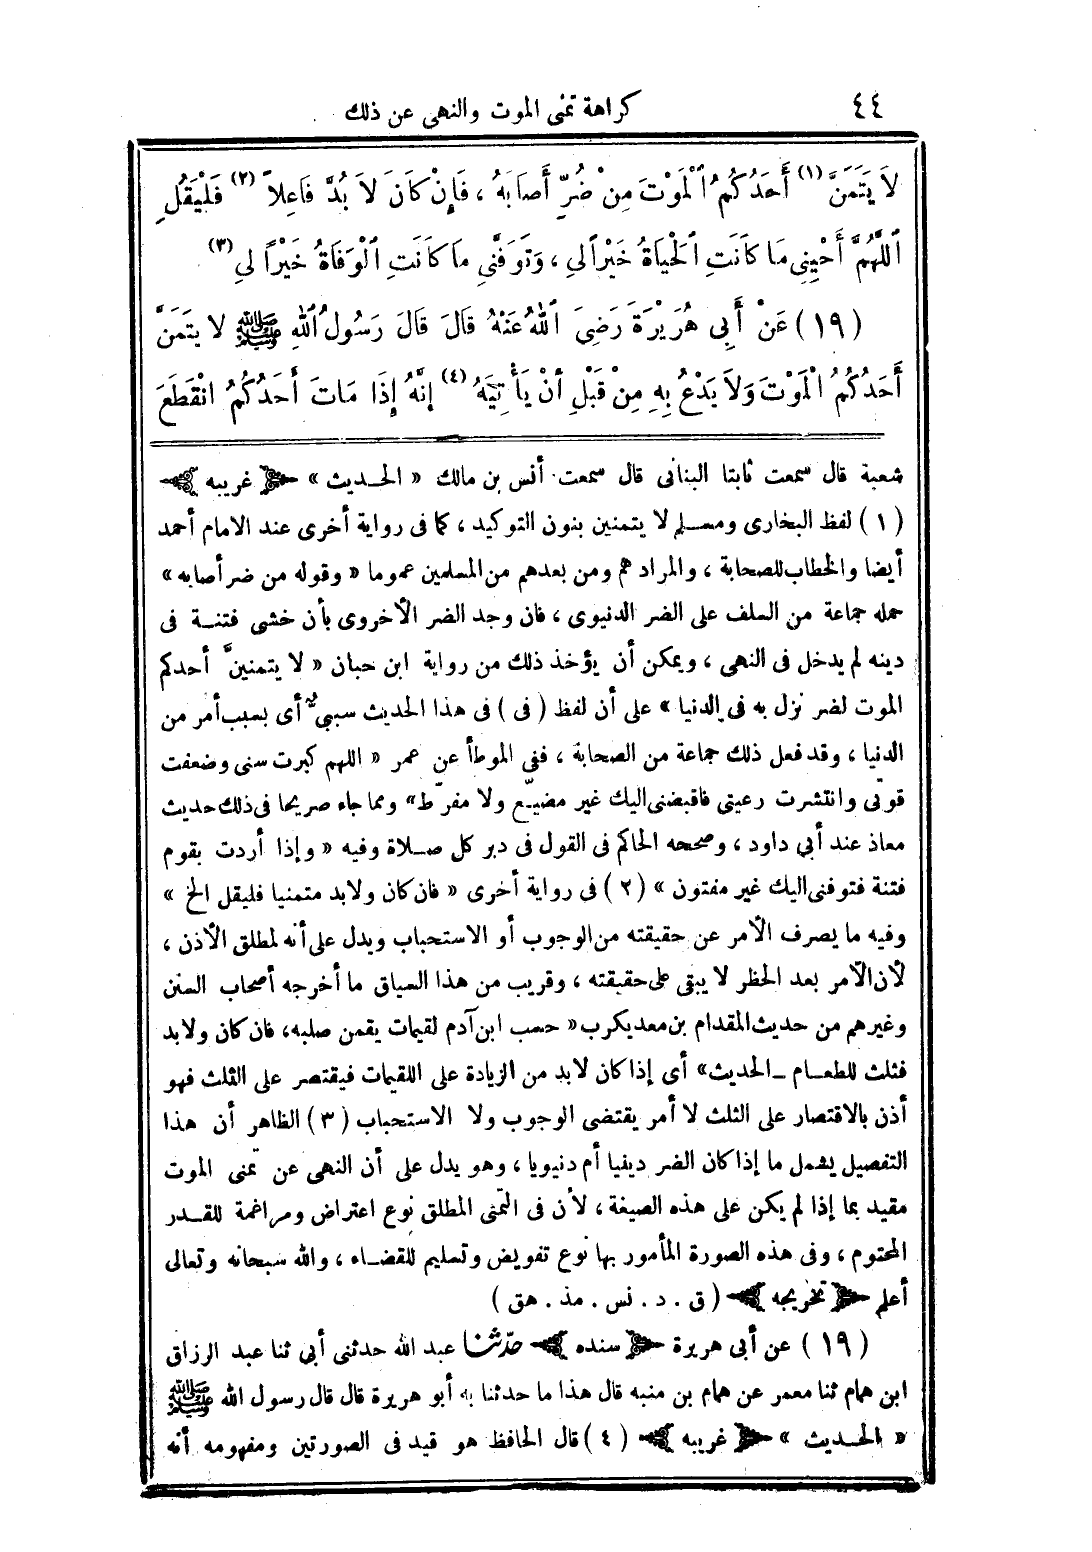 ٤٤ كراهة تمنى الموت والنهى عن ذلك
لاَ يَتَمَنَّ (١) أَحَدُكُمُ ٱلْمَوْتَ مِنْ ضُرٍّ أَصَابَهُ ، فَإِنْ كَانَ لاَ بُدَّ فَاعِلاً (٢) فَلْيَقُلِ
ٱللَّهُمَّ أَحْيِنِي مَا كَانَتِ ٱلْحَيَاةُ خَيْراً لِي ، وَتَوَفَّنِي مَا كَانَتِ ٱلْوَفَاةُ خَيْراً لِي (٣)
(١٩) عَنْ أَبِي هُرَيْرَةَ رَضِيَ ٱللهُ عَنْهُ قَالَ قَالَ رَسُولُ ٱللهِ ﷺ لا يَتَمَنَّ
أَحَدُكُمُ الْمَوْتَ وَلاَ يَدْعُ بِهِ مِنْ قَبْلِ أَنْ يَأْتِيَهُ (٤) إِنَّهُ إِذَا مَاتَ أَحَدُكُمُ انْقَطَعَ
شعبة قال سمعت ثابتا البنانى قال سمعت أنس بن مالك « الحديث » ﴿ غريبه ﴾
(١) لفظ البخارى ومسلم لا يتمنين بنون التوكيد ، كما فى رواية أخرى عند الامام أحمد
أيضا والخطاب للصحابة ، والمراد هم ومن بعدهم من المسلمين عموما « وقوله من ضر أصابه »
حمله جماعة من السلف على الضر الدنيوى ، فان وجد الضر الأخروى بأن خشى فتنة فى
دينه لم يدخل فى النهى ، ويمكن أن يؤخذ ذلك من رواية ابن حبان « لا يتمنينَّ أحدكم
الموت لضر نزل به فى الدنيا » على أن لفظ ( فى ) فى هذا الحديث سببيٌّ أى بسبب أمر من
الدنيا ، وقد فعل ذلك جماعة من الصحابة ، ففى الموطأ عن عمر « اللهم كبرت سنى وضعفت
قوتى وانتشرت رعيتى فاقبضنى اليك غير مضيّع ولا مفرّط» ومما جاء صريحا فى ذلك حديث
معاذ عند أبي داود ، وصححه الحاكم فى القول فى دبر كل صلاة وفيه « وإذا أردت بقوم
فتنة فتوفنى اليك غير مفتون » (٢) فى رواية أخرى « فان كان ولابد متمنيا فليقل الخ »
وفيه ما يصرف الأمر عن حقيقته من الوجوب أو الاستحباب ويدل على أنه لمطلق الأذن ،
لأن الأمر بعد الحظر لا يبقى على حقيقته ، وقريب من هذا السياق ما أخرجه أصحاب السنن
وغيرهم من حديث المقدام بن معديكرب « حسب ابن آدم لقيمات يقمن صلبه، فان كان ولابد
فثلث للطعام ــ الحديث» أى إذا كان لابد من الزيادة على اللقيمات فيقتصر على الثلث فهو
أذن بالاقتصار على الثلث لا أمر يقتضى الوجوب ولا الاستحباب (٣) الظاهر أن هذا
التفصيل يشمل ما إذا كان الضر دينيا أم دنيويا ، وهو يدل على أن النهى عن تمنى الموت
مقيد بما إذا لم يكن على هذه الصيغة ، لأن فى التمنى المطلق نوع اعتراض ومراغمة للقدر
المحتوم ، وفى هذه الصورة المأمور بها نوع تفويض وتسليم للقضاء ، والله سبحانه وتعالى
أعلم ﴿ تخريجه ﴾ ( ق . د . نس . مذ . هق )
(١٩) عن أبى هريرة ﴿ سنده ﴾ حدّثنا عبد الله حدثنى أبي ثنا عبد الرزاق
ابن همام ثنا معمر عن همام بن منبه قال هذا ما حدثنا به أبو هريرة قال قال رسول الله ﷺ
« الحديث » ﴿ غريبه ﴾ (٤) قال الحافظ هو قيد فى الصورتين ومفهومه أنه